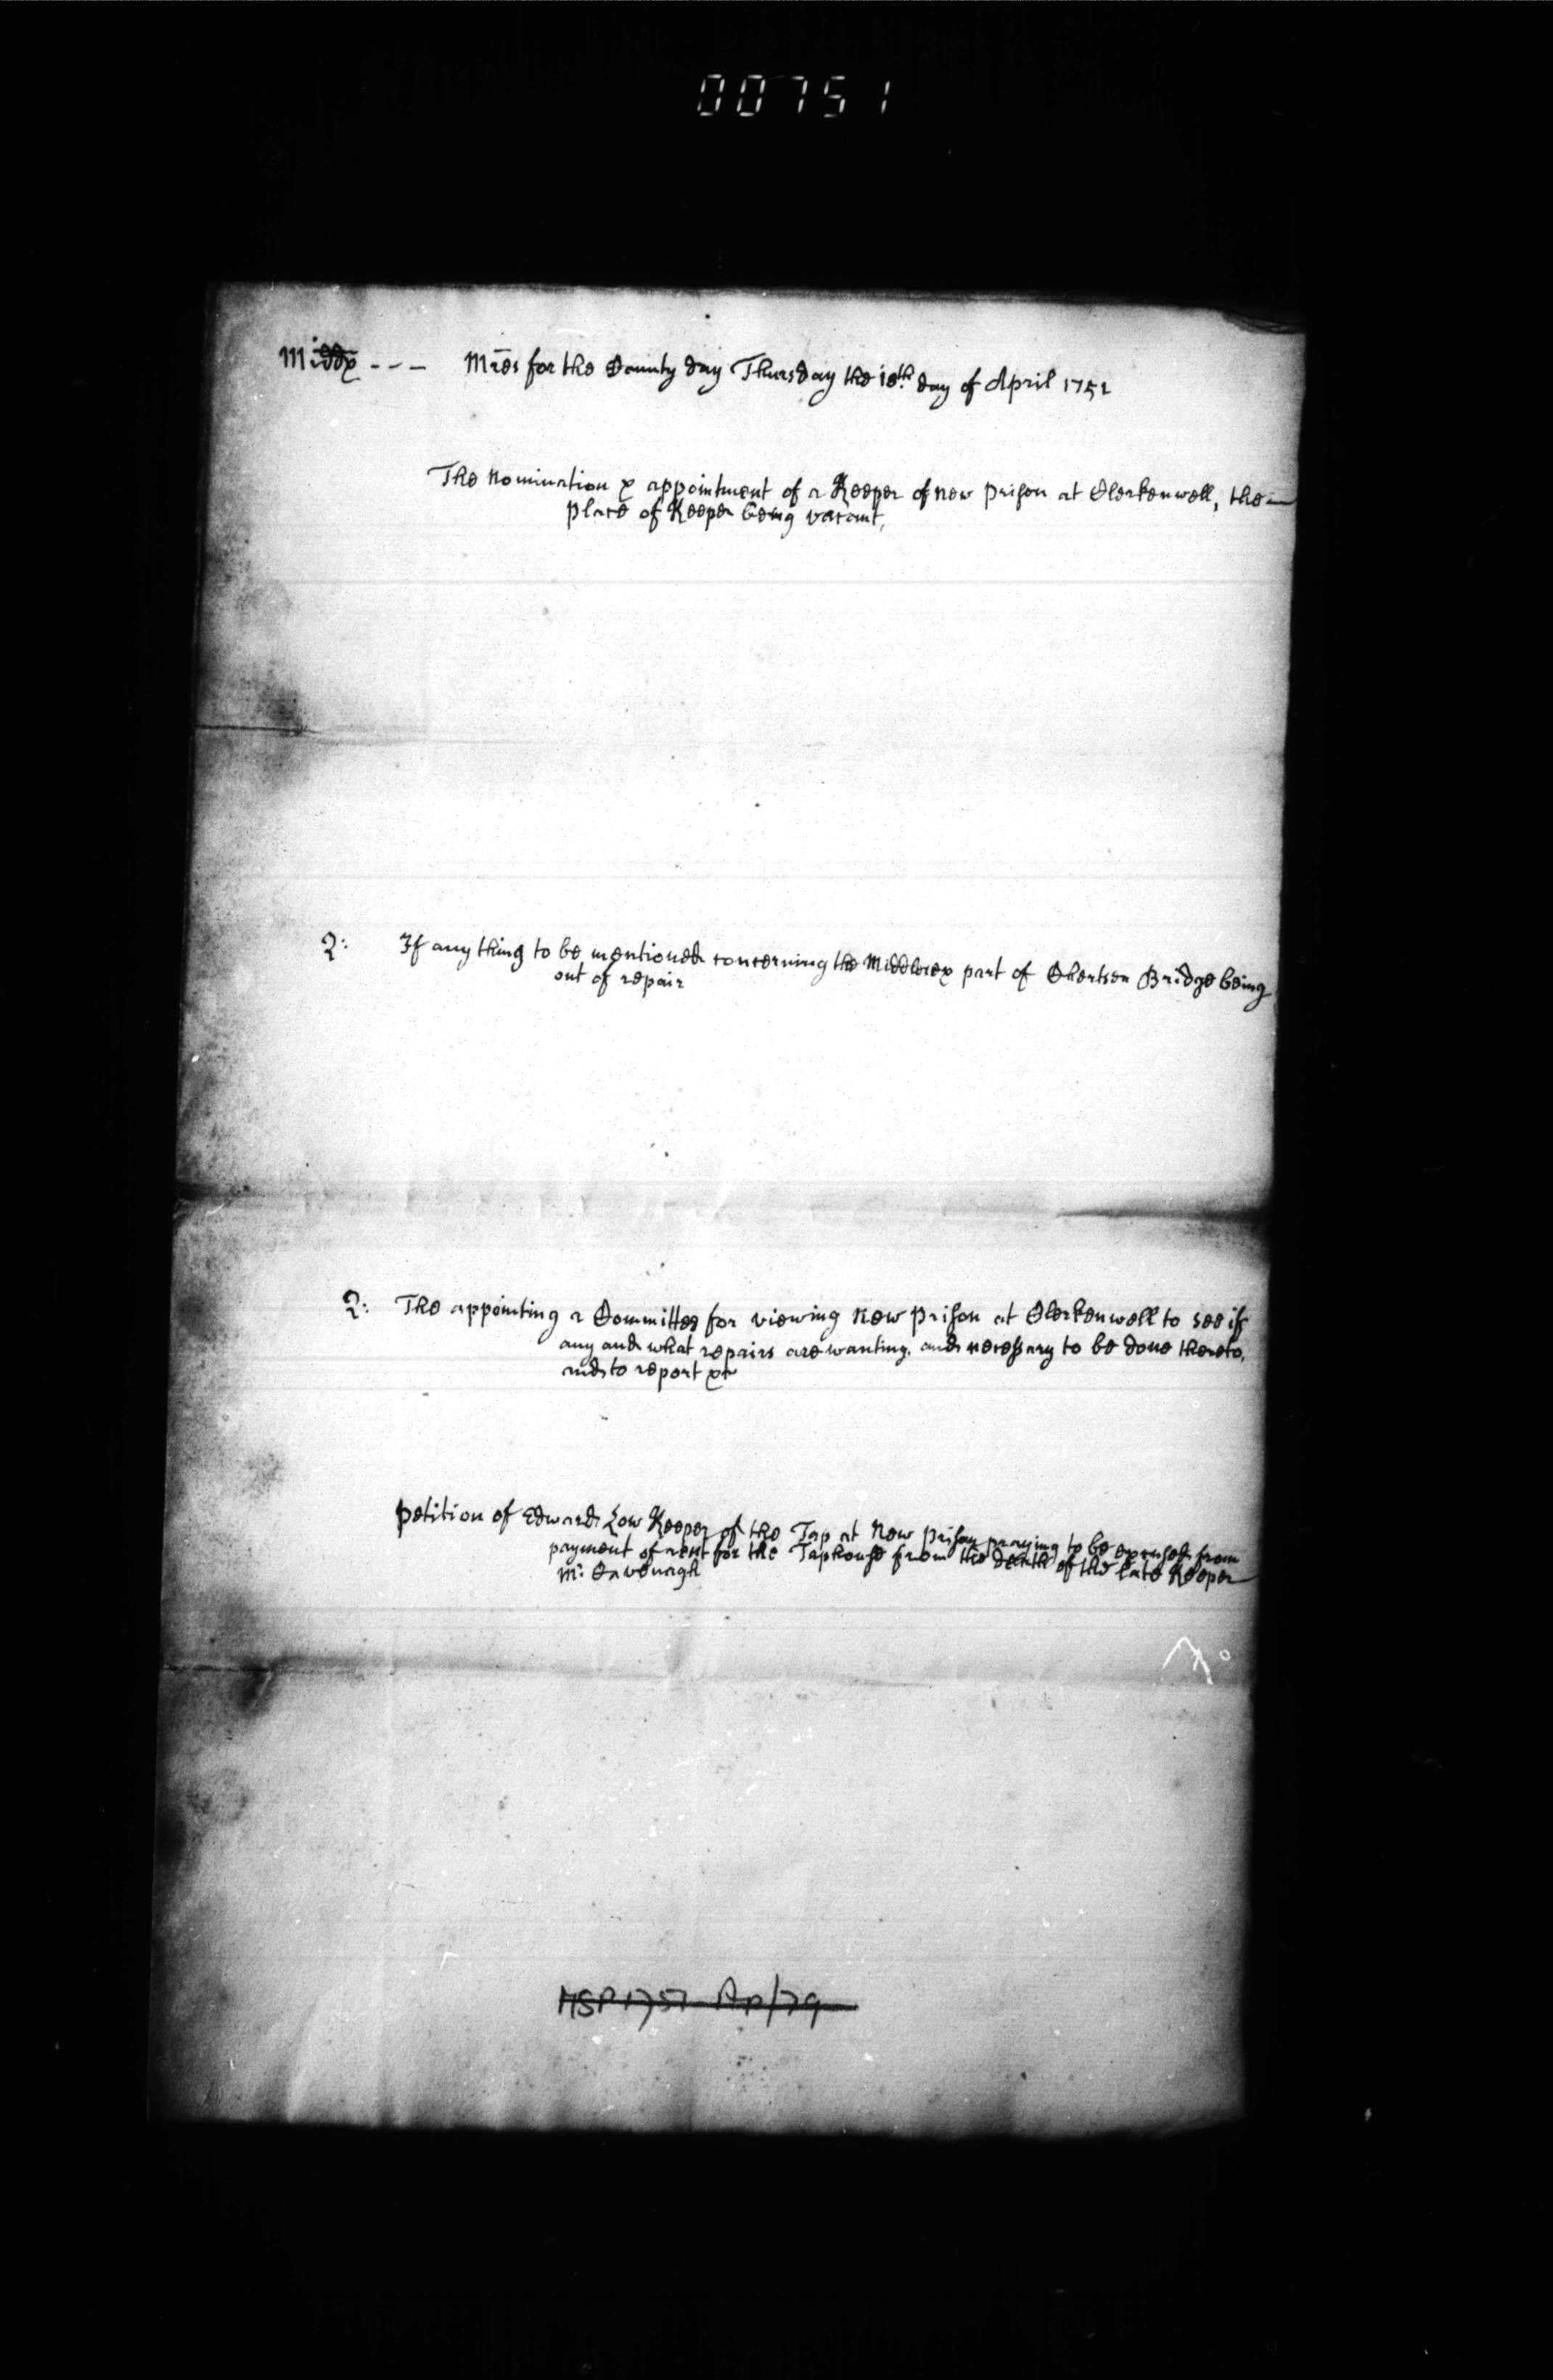 00751
Middx - - - M̄res for the County day Thursday the 18th. day of April 1751
The Nomination & appointment of a Keeper of New Prison at Clerkenwell, the
place of Keeper being vacant,
Q: If any thing to be mentioned concerning the Middlesex part of Chertsey Bridge being
out of repair
Q: The appointing a Committee for viewing New Prison at Clerkenwell to see if
any and what repairs are wanting, and necessary to be done thereto,
and to report &c
Petition of Edward Low Keeper of the Tap at New Prison praying to be excused from
payment of rent for the Taphouse from the death of the late Keeper
Mr: Cavenagh
MSP 1751 Ap/79